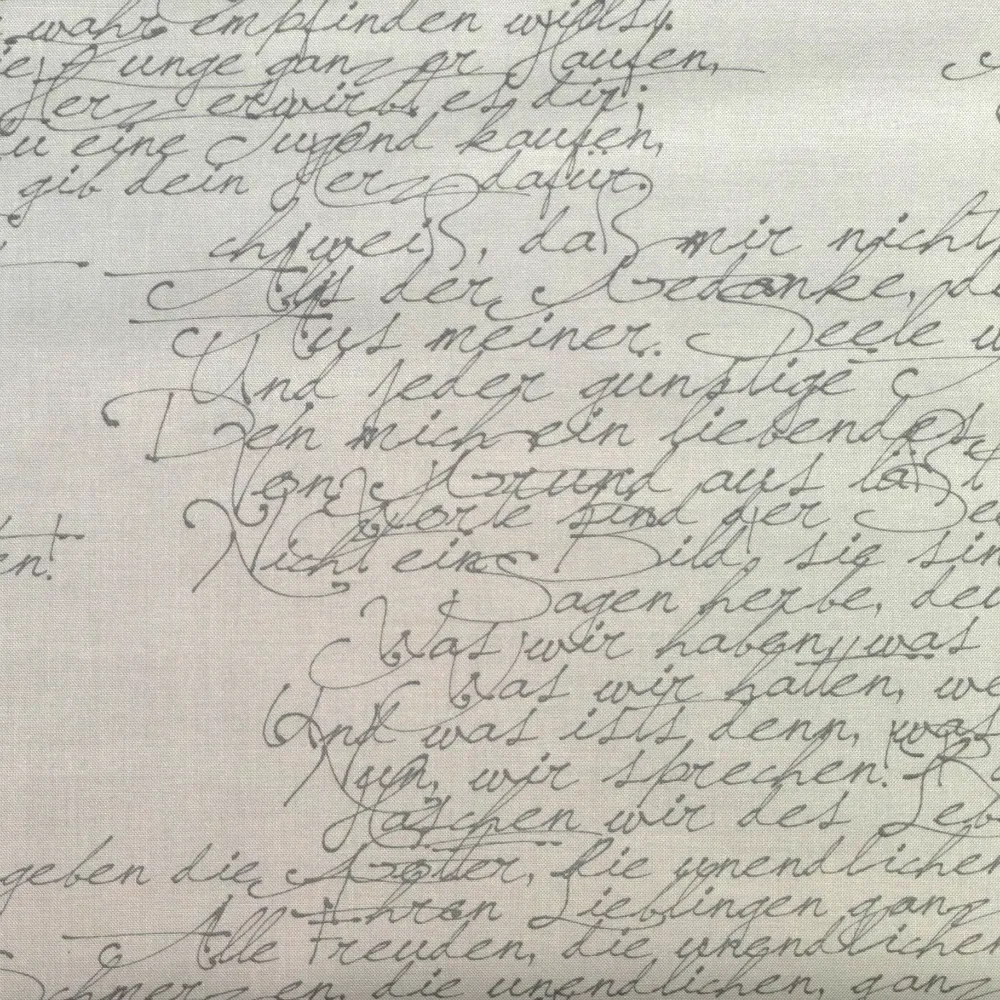 wahr empfinden willst.
Junge ganzer Haufen,
Herz erwirbt es dir;
du eine Jugend kaufen,
gib dein Herz dafür.
Ich weiß, daß mir nicht
Als der Gedanke, de
Aus meiner Seele w
Und jeder günstige
Den mich ein liebendes
Von Grund aus läßt
Worte sind der See
en! Nicht ein Bild, sie sin
Sagen herbe, deu
Was wir haben, was
Was wir hatten, we
Und was ists denn, was
Nun, wir sprechen! Ra
Haschen wir des Leb
geben die Götter, die unendlichen
Ihren Lieblingen ganz
Alle Freuden, die unendlichen
Schmerzen, die unendlichen, ganz